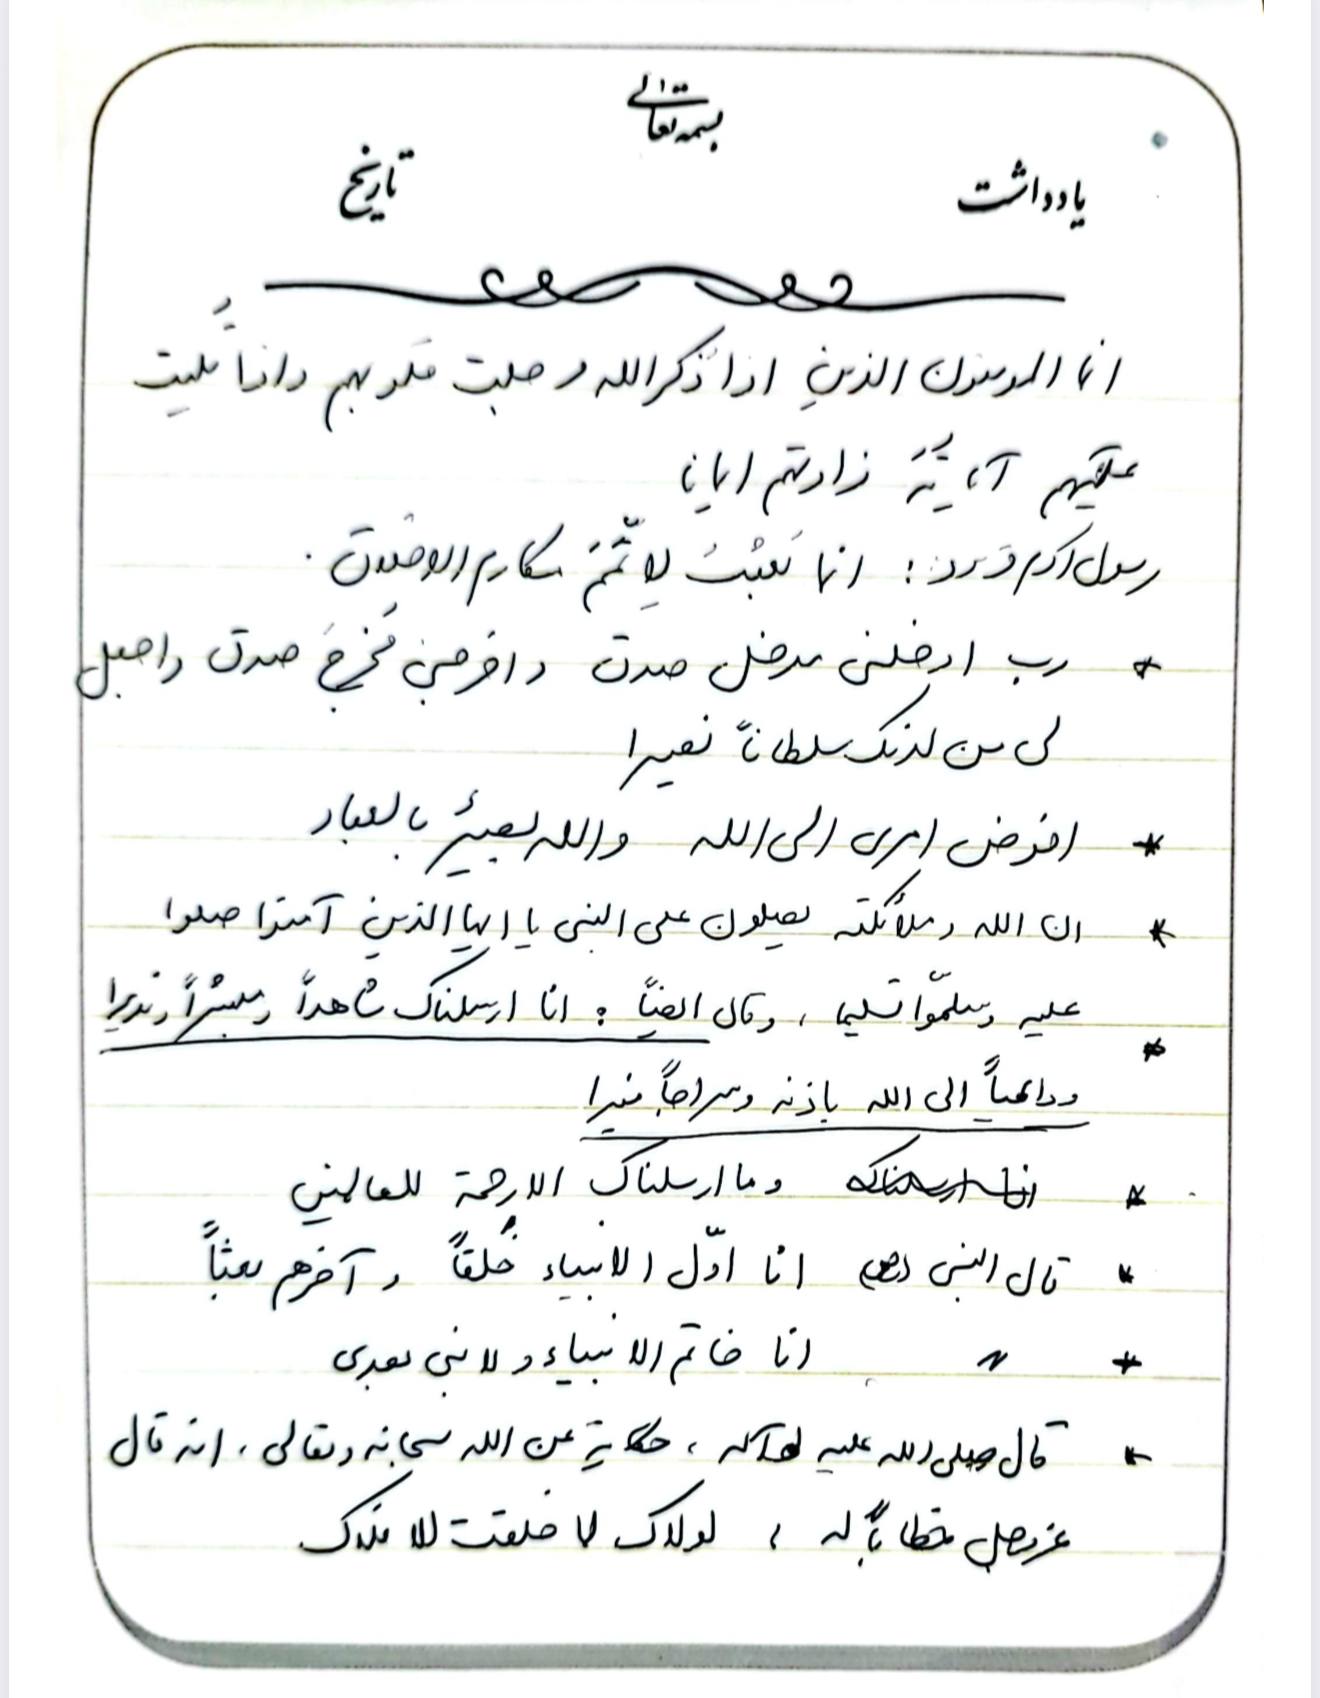 بسمه تعالی
یادداشت
تاریخ
انما المومنون الذین اذا ذُکر الله وجلبت قلوبهم واذا تُلیت
علیهم آیاتُهُ زادتهم ایمانا
رسول اکرم فرمود: انما بُعِثْتُ لِاُتَمِّمَ مکارم الاخلاق.
* رب ادخلنی مدخل صدق واخرجنی مُخرجَ صدق واجعل
لی من لدنک سلطاناً نصیرا
* افوض امری الی الله والله بصیرٌ بالعباد
* ان الله وملائکته یصلون علی النبی یا ایها الذین آمنوا صلوا
علیه وسلّموا تسلیما، وقال ایضاً: انا ارسلناک شاهداً ومبشراً ونذیرا
* وداعیاً الی الله باذنه وسراجاً منیرا
* انا ارسلناک وما ارسلناک الا رحمة للعالمین
* قال النبی (ص) انا اوّل الانبیاء خُلقاً وآخرهم بعثاً
* " انا خاتم الانبیاء ولا نبی بعدی
* قال صلی الله علیه وآله، حکایةً عن الله سبحانه وتعالی، انه قال
عزوجل خطاباً له، لولاک لما خلقت الافلاک